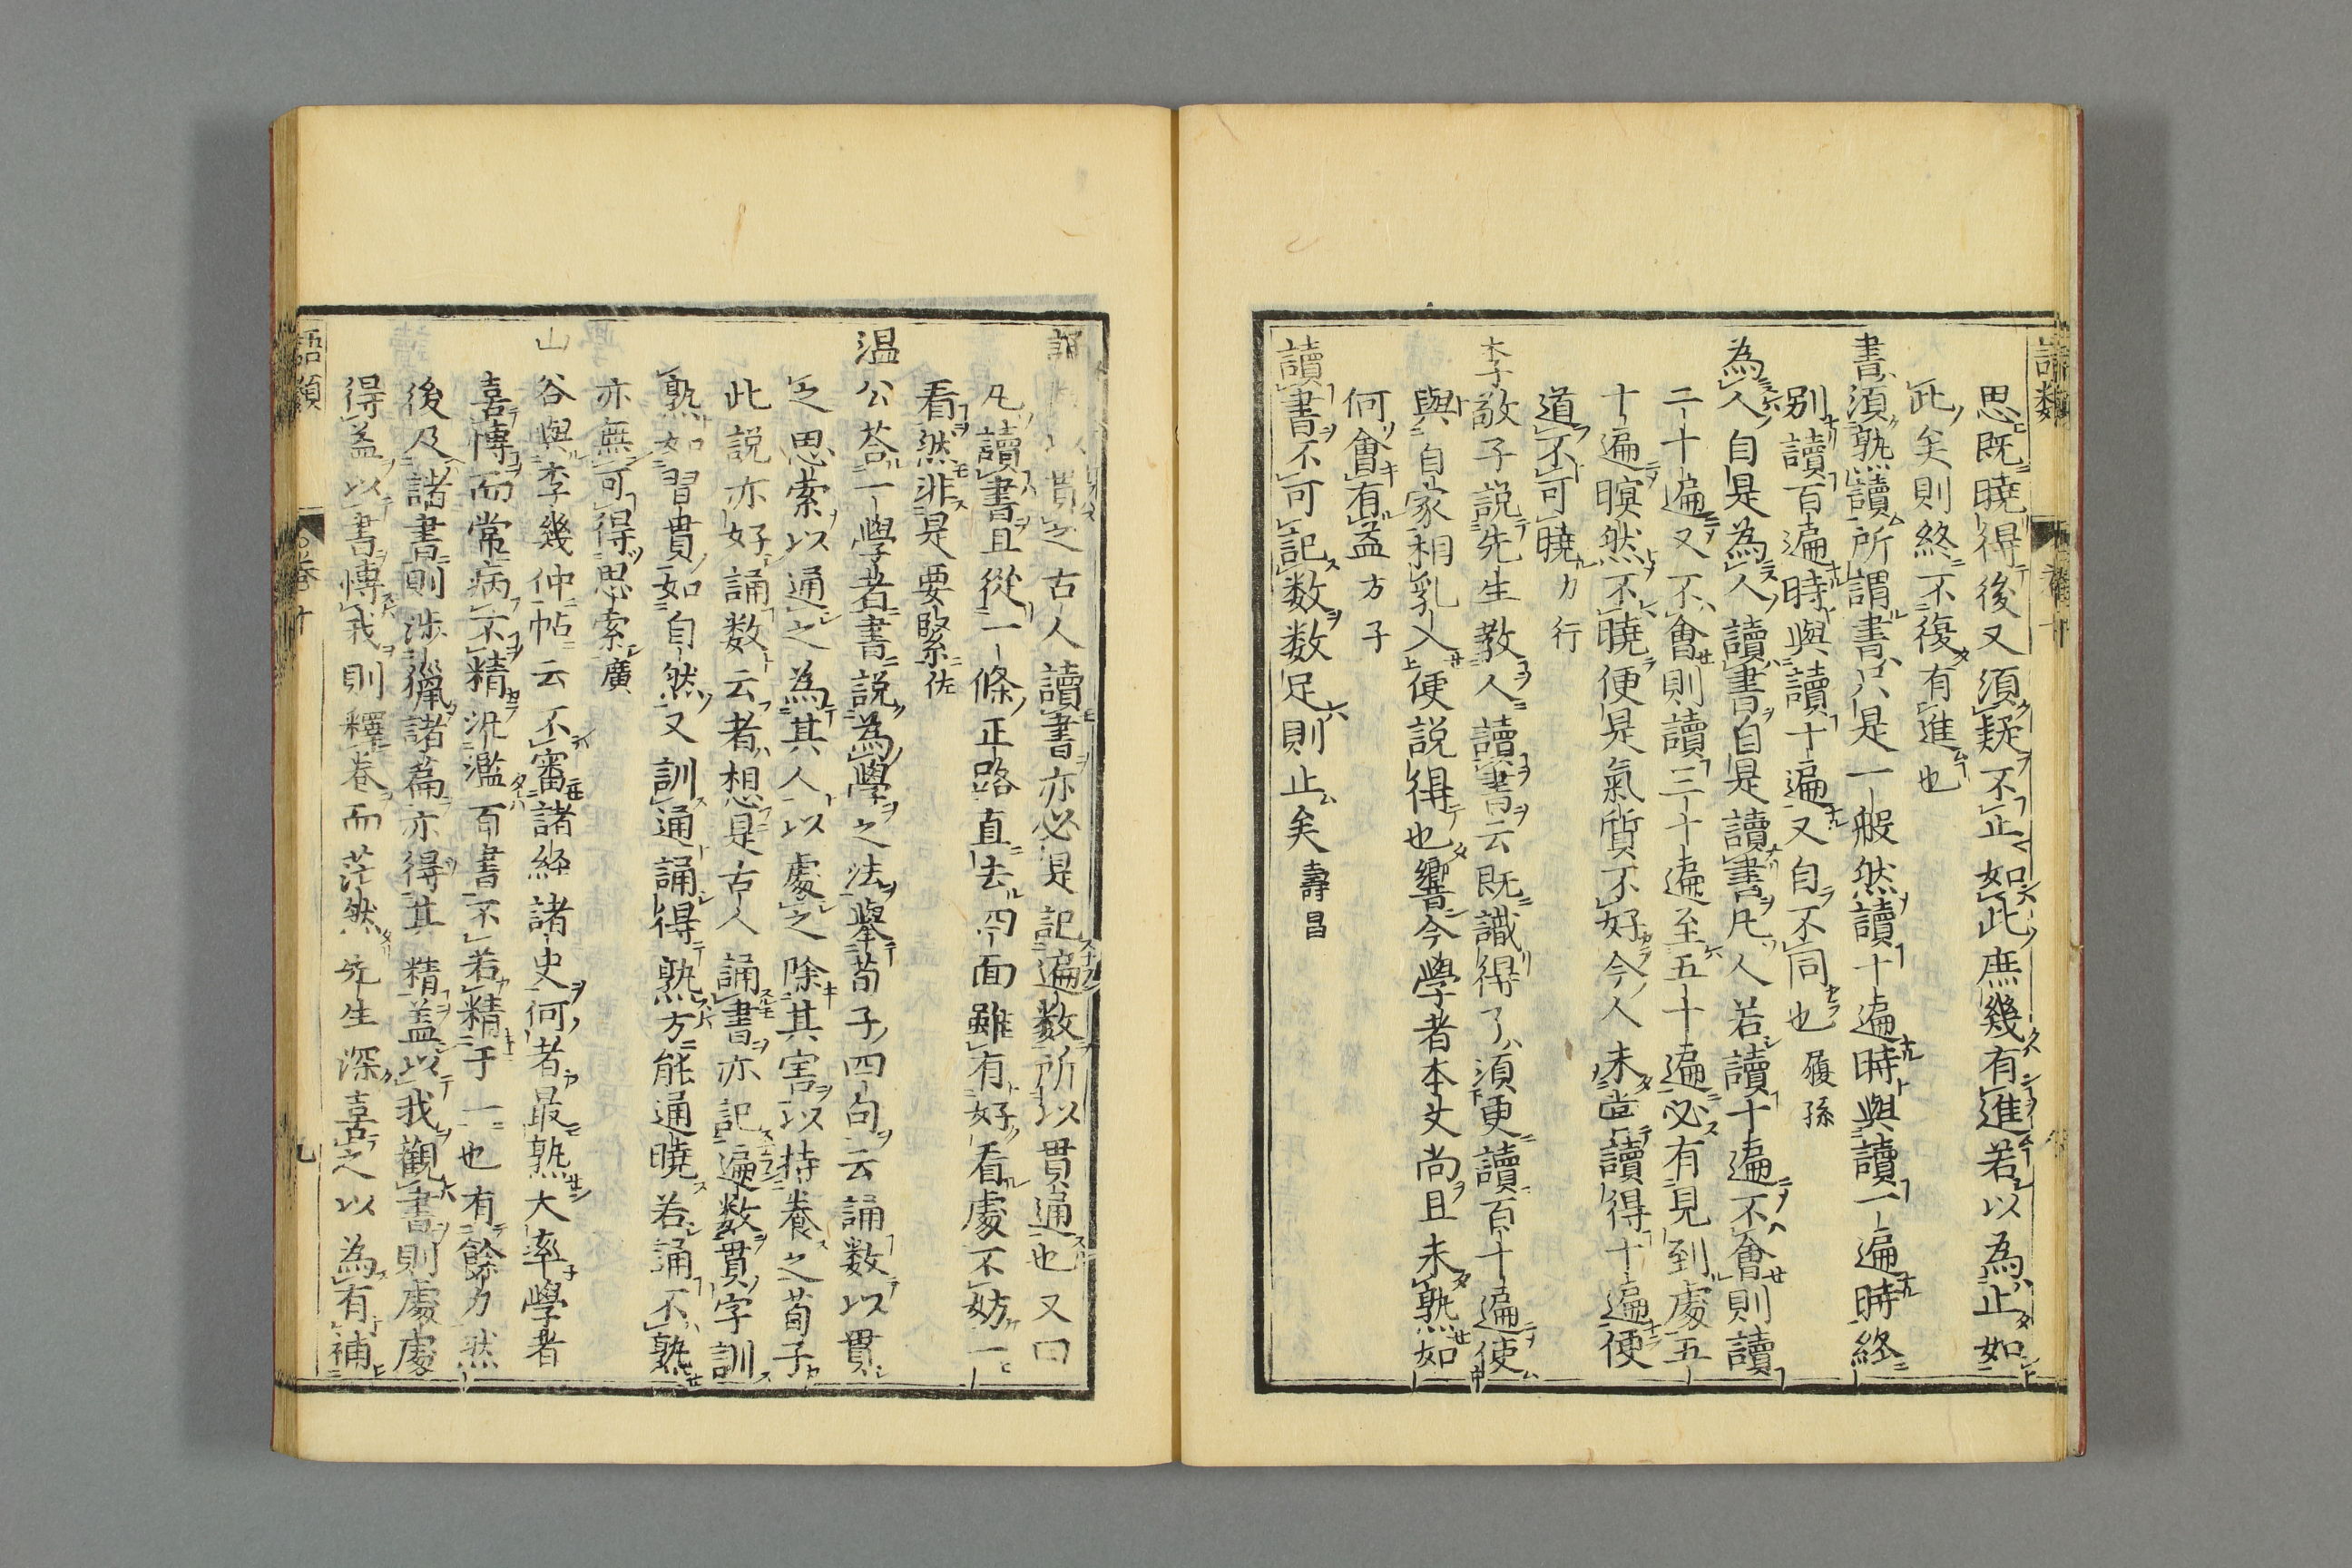 思既曉得後又須疑不止如此庶幾有進若以為止如
此矣則終不復有進也
書須熟讀所謂書只是一般然讀十遍時與讀一遍時終
別讀百遍時與讀十遍又自不同也履孫
為人自是為人讀書自是讀書凡人若讀十遍不會則讀
二十遍又不會則讀三十遍至五十遍必有見到處五
十遍暝然不曉便是氣質不好今人未嘗讀得十遍便
道不可曉力行
李敬子說先生教人讀書云既識得了須更讀百十遍使
與自家相乳入便說得也響今學者本文尚且未熟如
何會有益方子
讀書不可記数数足則止矣壽昌
誦以貫之古人讀書亦必是記遍数所以貫通也又曰
凡讀書且從一條正路直去四面雖有好看處不妨一
看然非是要緊佐
温公荅一學者書說為學之法舉荀子四句云誦数以貫
之思索以通之為其人以處之除其害以持養之荀子
此説亦好誦数云者想是古人誦書亦記遍数貫字訓
熟如習貫如自然又訓通誦得熟方能通曉若誦不熟
亦無可得思索廣
山谷與李幾仲帖云不審諸經諸史何者最熟大率學者
喜博而常病不精汎濫百書不若精于一也有餘力然
後及諸書則涉獵諸篇亦得其精蓋以我觀書則處處
得益以書博我則釋卷而茫然先生深喜之以為有補
語類
卷十
九